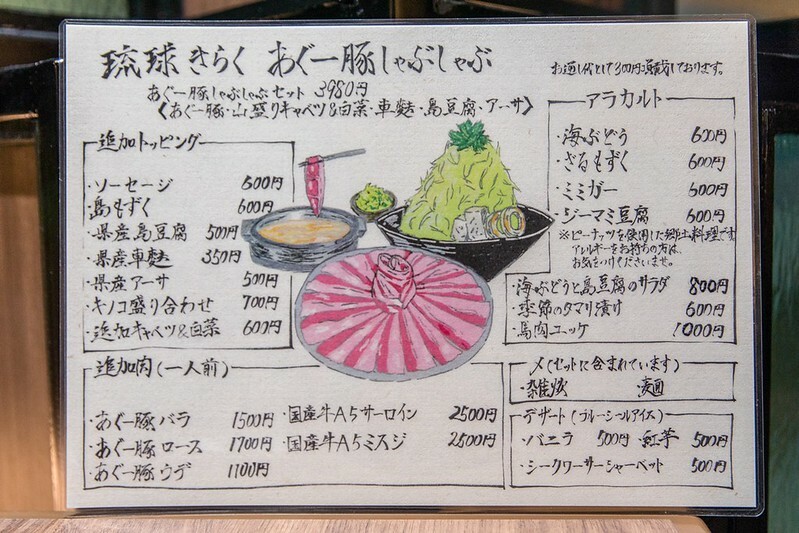 琉球きらく あぐー豚しゃぶしゃぶ
お通し代として300円頂戴しております。
あぐー豚しゃぶしゃぶセット 3980円
〈あぐー豚・山盛りキャベツ&白菜・車麩・島豆腐・アーサ〉
追加トッピング
・ソーセージ 600円
・島もずく 600円
・県産島豆腐 500円
・県産車麩 350円
・県産アーサ 500円
・キノコ盛り合わせ 700円
・追加キャベツ&白菜 600円
アラカルト
・海ぶどう 600円
・ざるもずく 600円
・ミミガー 600円
・ジーマミ豆腐 600円
※ピーナッツを使用した郷土料理です
アレルギーをお持ちの方は、
お気をつけくださいませ。
・海ぶどうと島豆腐のサラダ 800円
・季節のタマリ漬け 600円
・馬肉ユッケ 1000円
追加肉(一人前)
・あぐー豚バラ 1500円
・あぐー豚ロース 1700円
・あぐー豚ウデ 1100円
・国産牛A5サーロイン 2500円
・国産牛A5ミスジ 2500円
〆(セットに含まれています)
・雑炊 ・麺
デザート(ブルーシールアイス)
・バニラ 500円 ・紅芋 500円
・シークワーサーシャーベット 500円